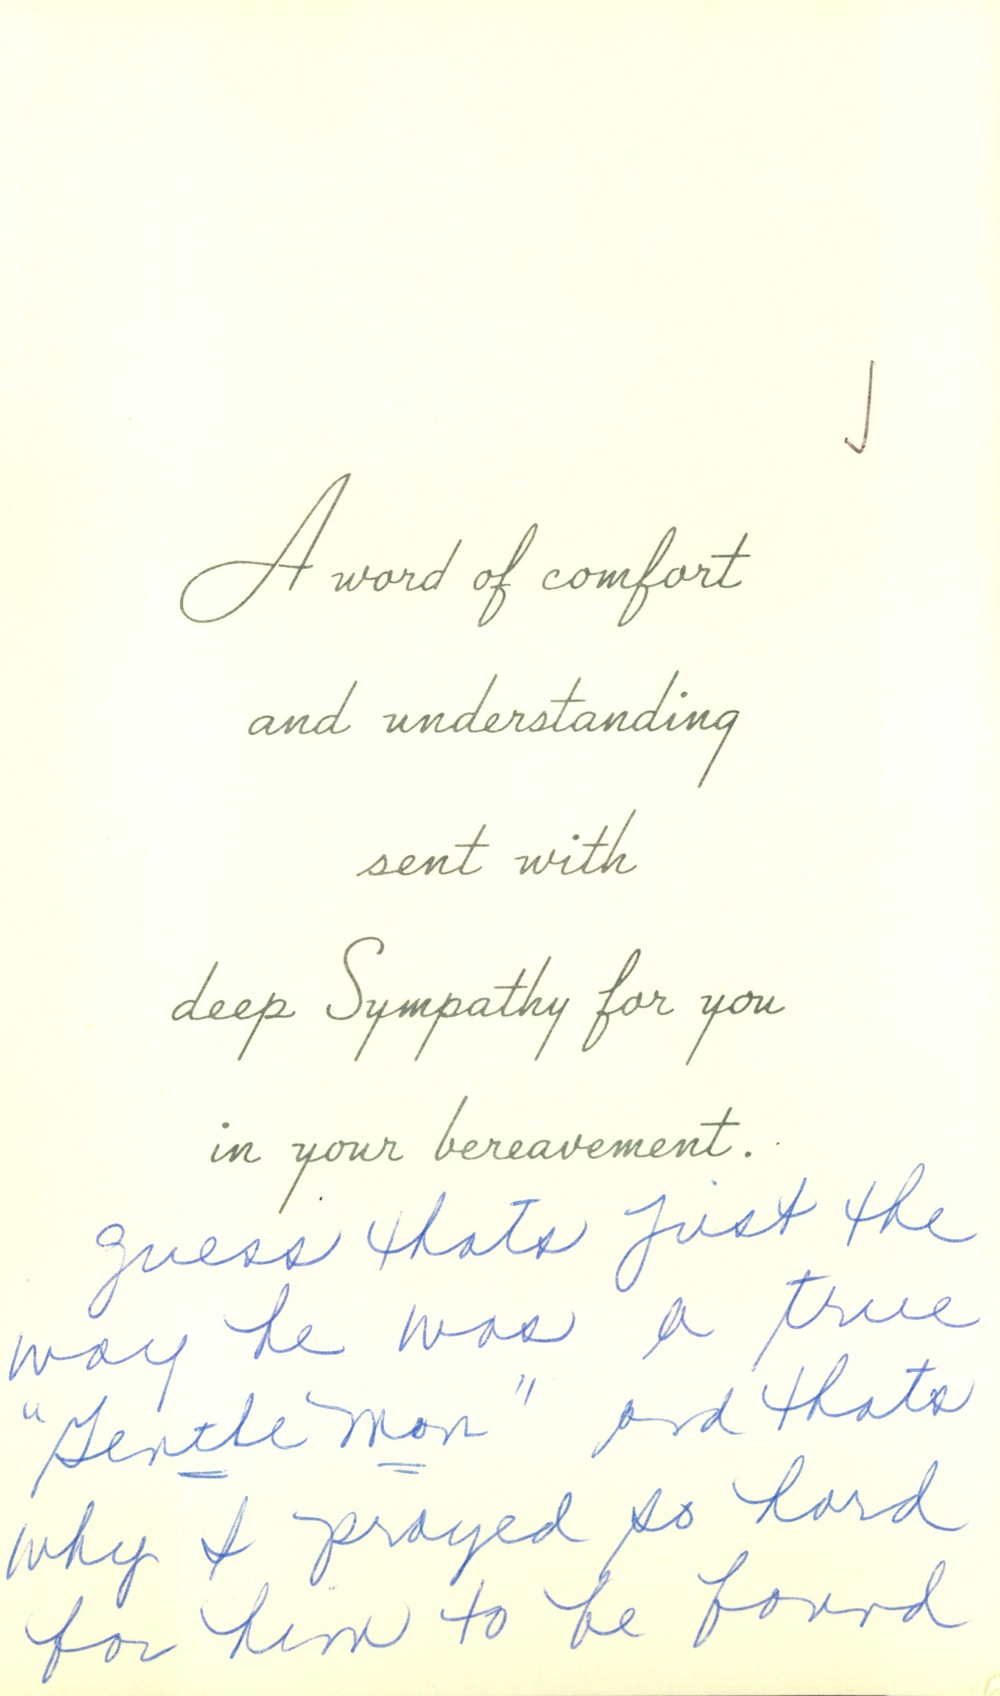 A word of comfort
and understanding
sent with
deep Sympathy for you
in your bereavement.
guess thats just the
way he was a true
"Gentle Man" and thats
why I prayed so hard
for him to be found